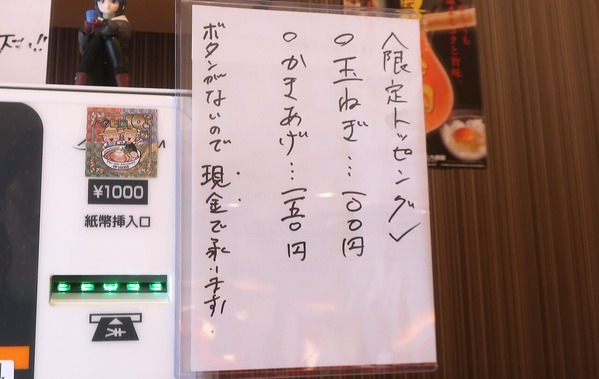 〈限定トッピング〉
○玉ねぎ…一〇〇円
○かきあげ…一五〇円
ボタンがないので現金で承ります!
¥1000
紙幣挿入口